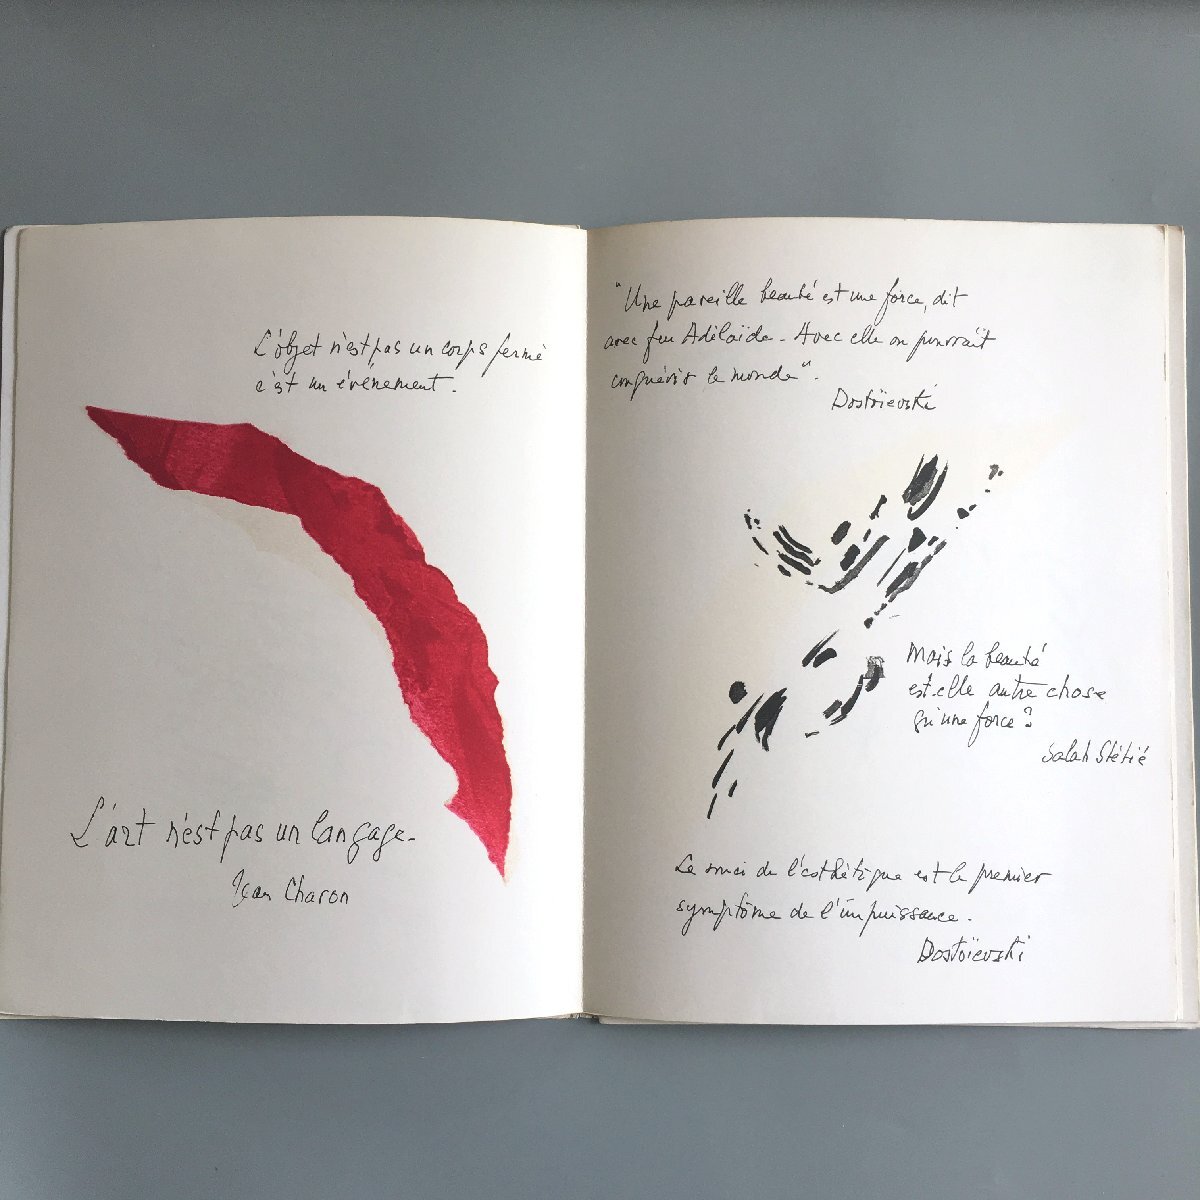 L'objet n'est pas un corps fermé
c'est un événement.
L'art n'est pas un langage.
Jean Charon
"Une pareille beauté est une force, dit
avec feu Adélaïde. Avec elle on pourrait
conquérir le monde".
Dostoïevski
Mais la beauté
est-elle autre chose
qu'une force?
Salah Stétié
Le souci de l'esthétique est le premier
symptôme de l'impuissance.
Dostoïevski